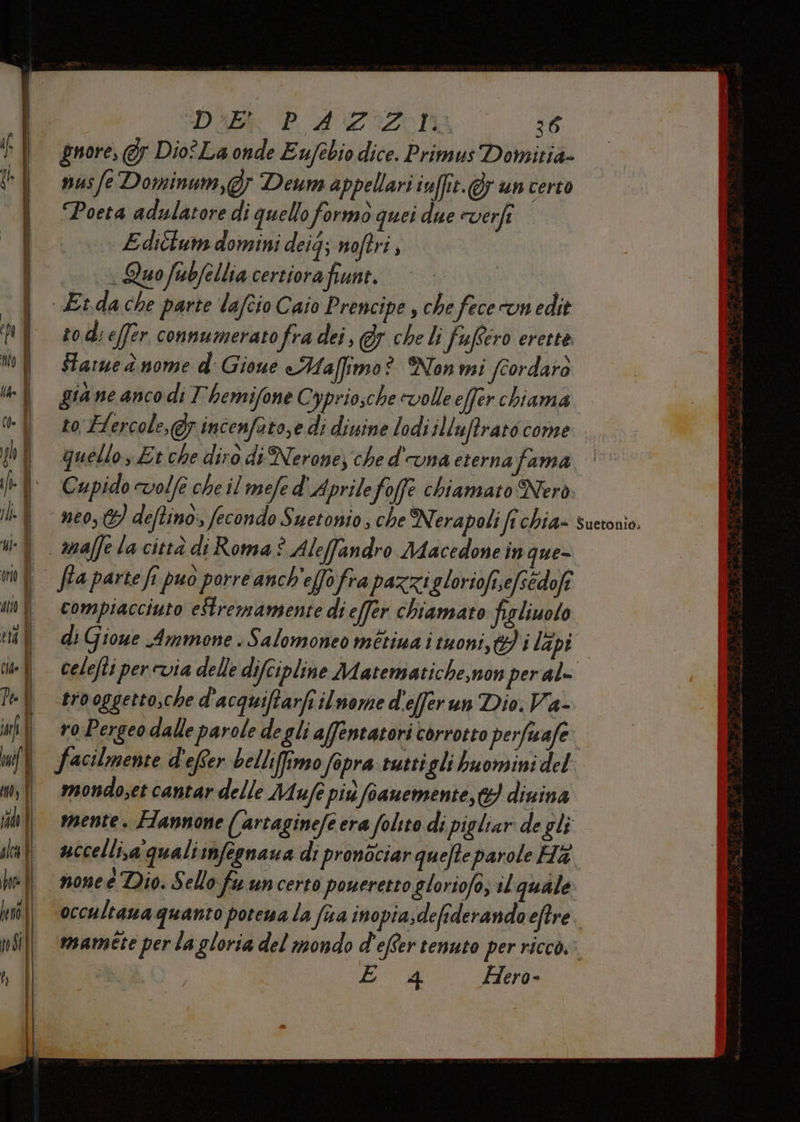 DE' PAZZI. 36
gnore, & Dio? La onde Eusebio dice. Primus Domitia-
nus se Dominum, & Deum appellari iussit. & un certo
Poeta adulatore di quello formò quei due versi
Edictum domini deiq; nostri,
Quo subsellia certiora fiunt.
Et da che parte lascio Caio Prencipe, che fece vn edit
to di esser connumerato fra dei, & che li fussero erette
statue à nome d' Gioue Massimo? Non mi scordarò
già ne anco di Themisone Cyprio, che volle esser chiama
to Hercole, & incensato, e di diuine lodi illustrato come
quello, Et che dirò di Nerone, che d'vna eterna fama
Cupido volse che il mese d'Aprile fosse chiamato Nero
neo, & destinò, secondo Suetonio, che Nerapoli si chia- Suetonio.
masse la città di Roma? Alessandro Macedone in que-
sta parte si può porre anch'esso fra pazzi gloriosi, essēdosi
compiacciuto estremamente di esser chiamato figliuolo
di Gioue Ammone. Salomoneo mētiua i tuoni, & i lāpi
celesti per via delle discipline Matematiche, non per al-
tro oggetto, che d'acquistarsi il nome d'esser un Dio. Va-
ro Pergeo dalle parole de gli assentatori corrotto persuase
facilmente d'esser bellissimo sopra tutti gli huomini del
mondo, et cantar delle Muse più soauemente, & diuina
mente. Hannone Cartaginese era solito di pigliar de gli
uccelli, a quali insegnaua di pronōciar queste parole Hā
none è Dio. Sello fu un certo poueretto glorioso, il quale
occultaua quanto poteua la sua inopia, desiderando estre
mamēte per la gloria del mondo d'esser tenuto per ricco.
E 4 Hero-